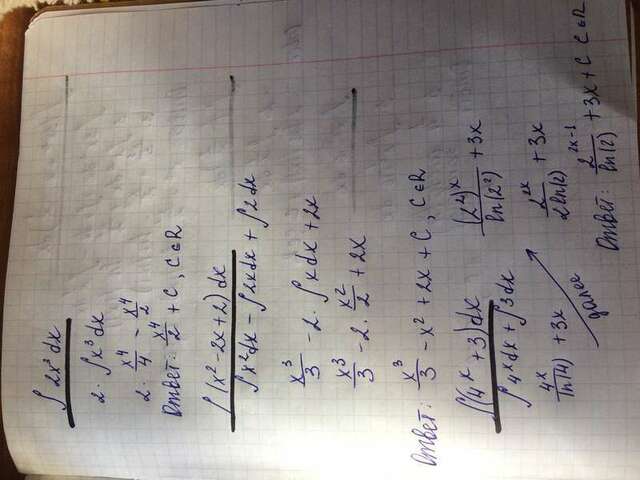 ∫ 2x³ dx
2 · ∫ x³ dx
2 · x⁴/4 - x⁴/2
Ответ: x⁴/2 + C, C∈R
∫ (x² - 2x + 2) dx
∫ x² dx - ∫ 2x dx + ∫ 2 dx
x³/3 - 2 · ∫ x dx + 2x
x³/3 - 2 · x²/2 + 2x
Ответ: x³/3 - x² + 2x + C, C∈R
∫ (4ˣ + 3) dx
∫ 4ˣ dx + ∫ 3 dx
4ˣ/ln(4) + 3x
далее
(2²)ˣ/ln(2²) + 3x
2²ˣ/2ln(2) + 3x
Ответ: 2²ˣ⁻¹/ln(2) + 3x + C C∈R